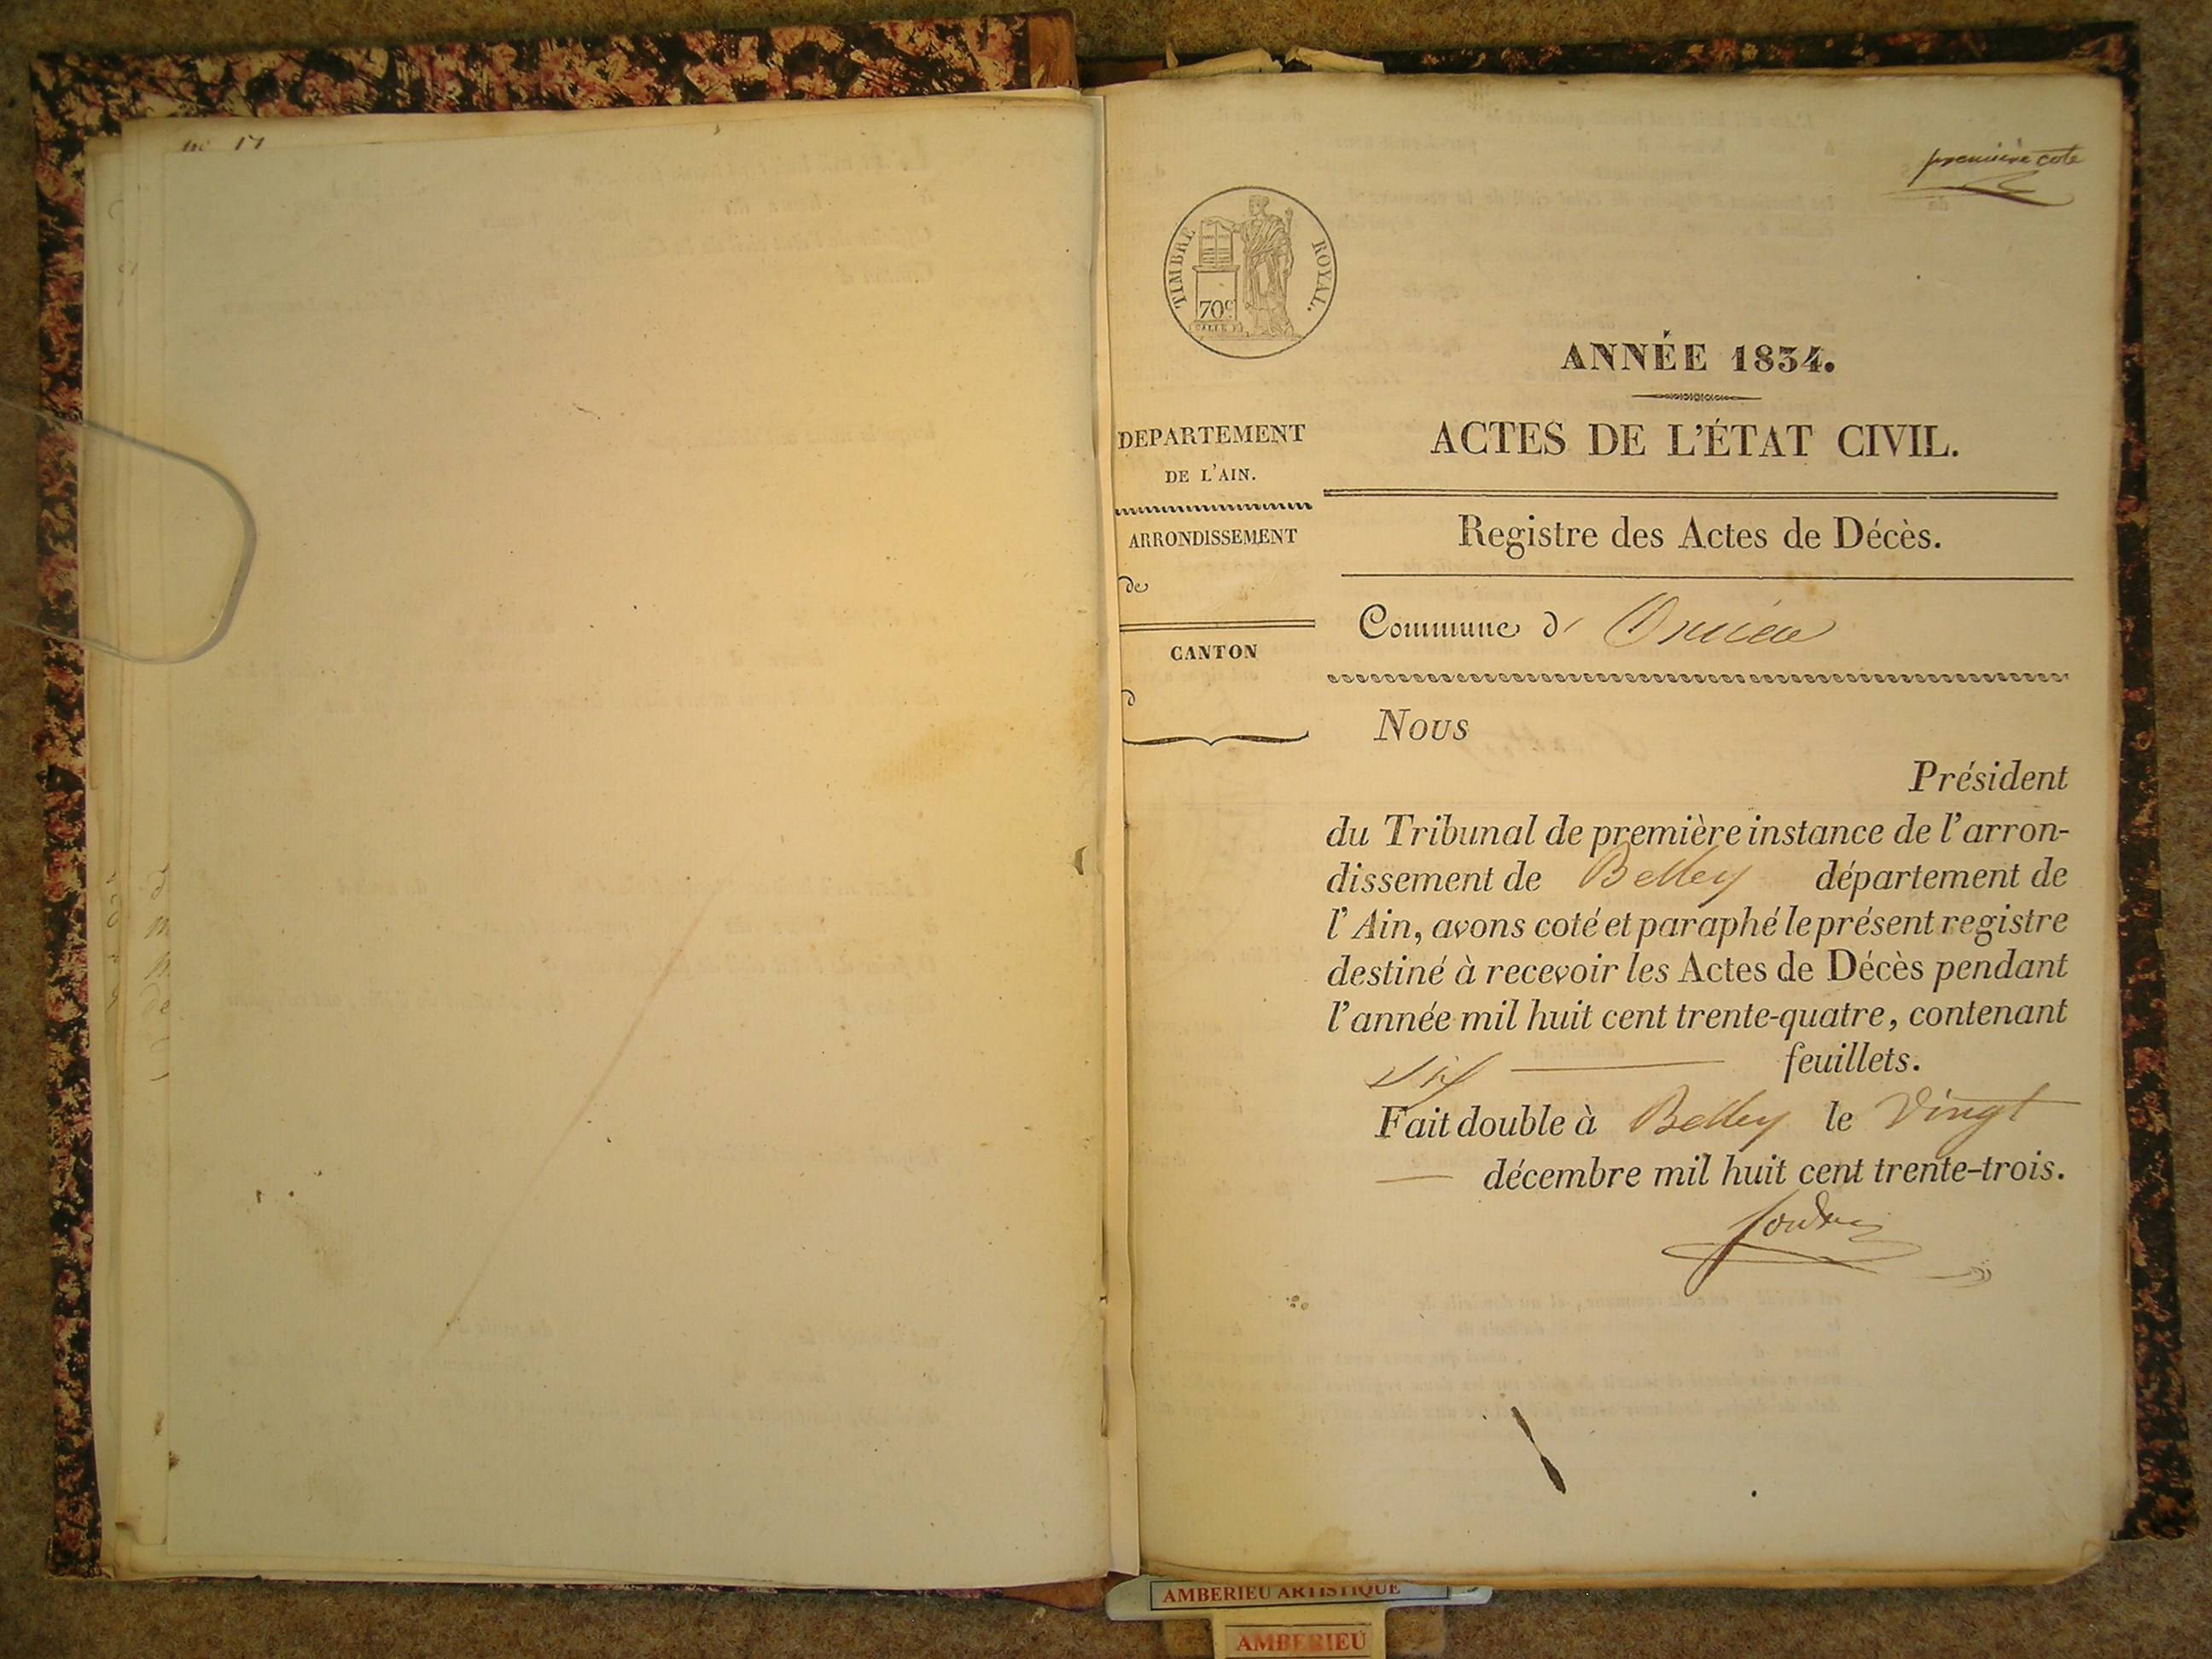 première cote
TIMBRE ROYAL.
70c
ANNÉE 1834.
ACTES DE L'ÉTAT CIVIL.
DEPARTEMENT
DE L'AIN.
ARRONDISSEMENT
de
CANTON
d
Registre des Actes de Décès.
Commune d'
Nous
Président
du Tribunal de première instance de l'arron-
dissement de Belley département de
l'Ain, avons coté et paraphé le présent registre
destiné à recevoir les Actes de Décès pendant
l'année mil huit cent trente-quatre, contenant
Six feuillets.
Fait double à Belley le Vingt
— décembre mil huit cent trente-trois.
AMBERIEU ARTISTIQUE
AMBERIEU